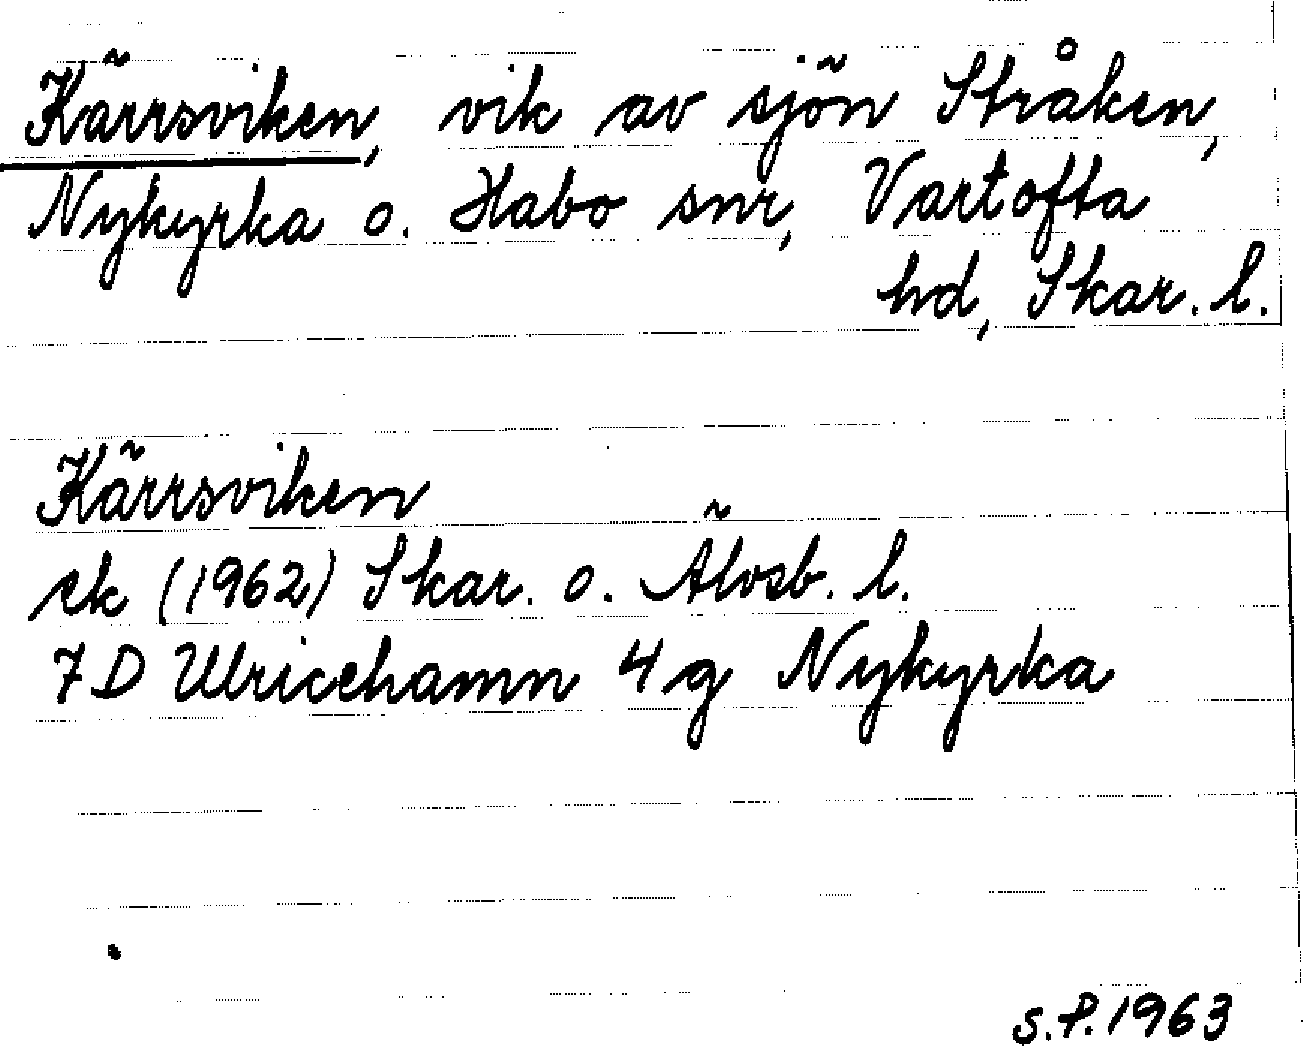 Kärrsviken, vik av sjön Stråken,
Nykyrka o. Habo snr, Vartofta
hd, Skar. l.
Kärrsviken
ek (1962) Skar. o. Älvsb. l.
7D Ulricehamn 4g Nykyrka
S.P. 1963